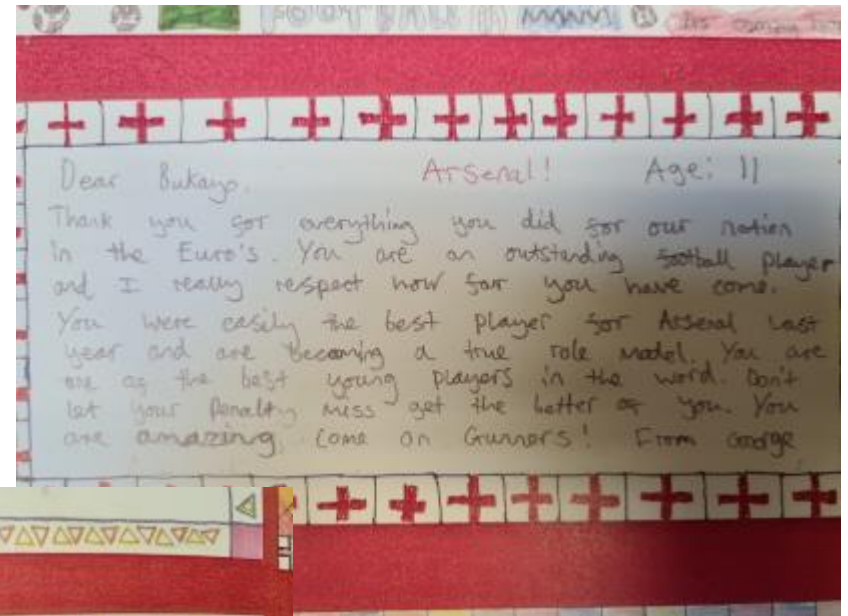 FOOTBALL
Its coming home
Dear Bukayo, Arsenal! Age: 11
Thank you for everything you did for our nation
in the Euro's. You are an outstanding football player
and I really respect how far you have come.
You were easily the best player for Arsenal last
year and are becoming a true role model. You are
one of the best young players in the word. Don't
let your Penalty miss get the better of you. You
are amazing. Come on Gunners! From George